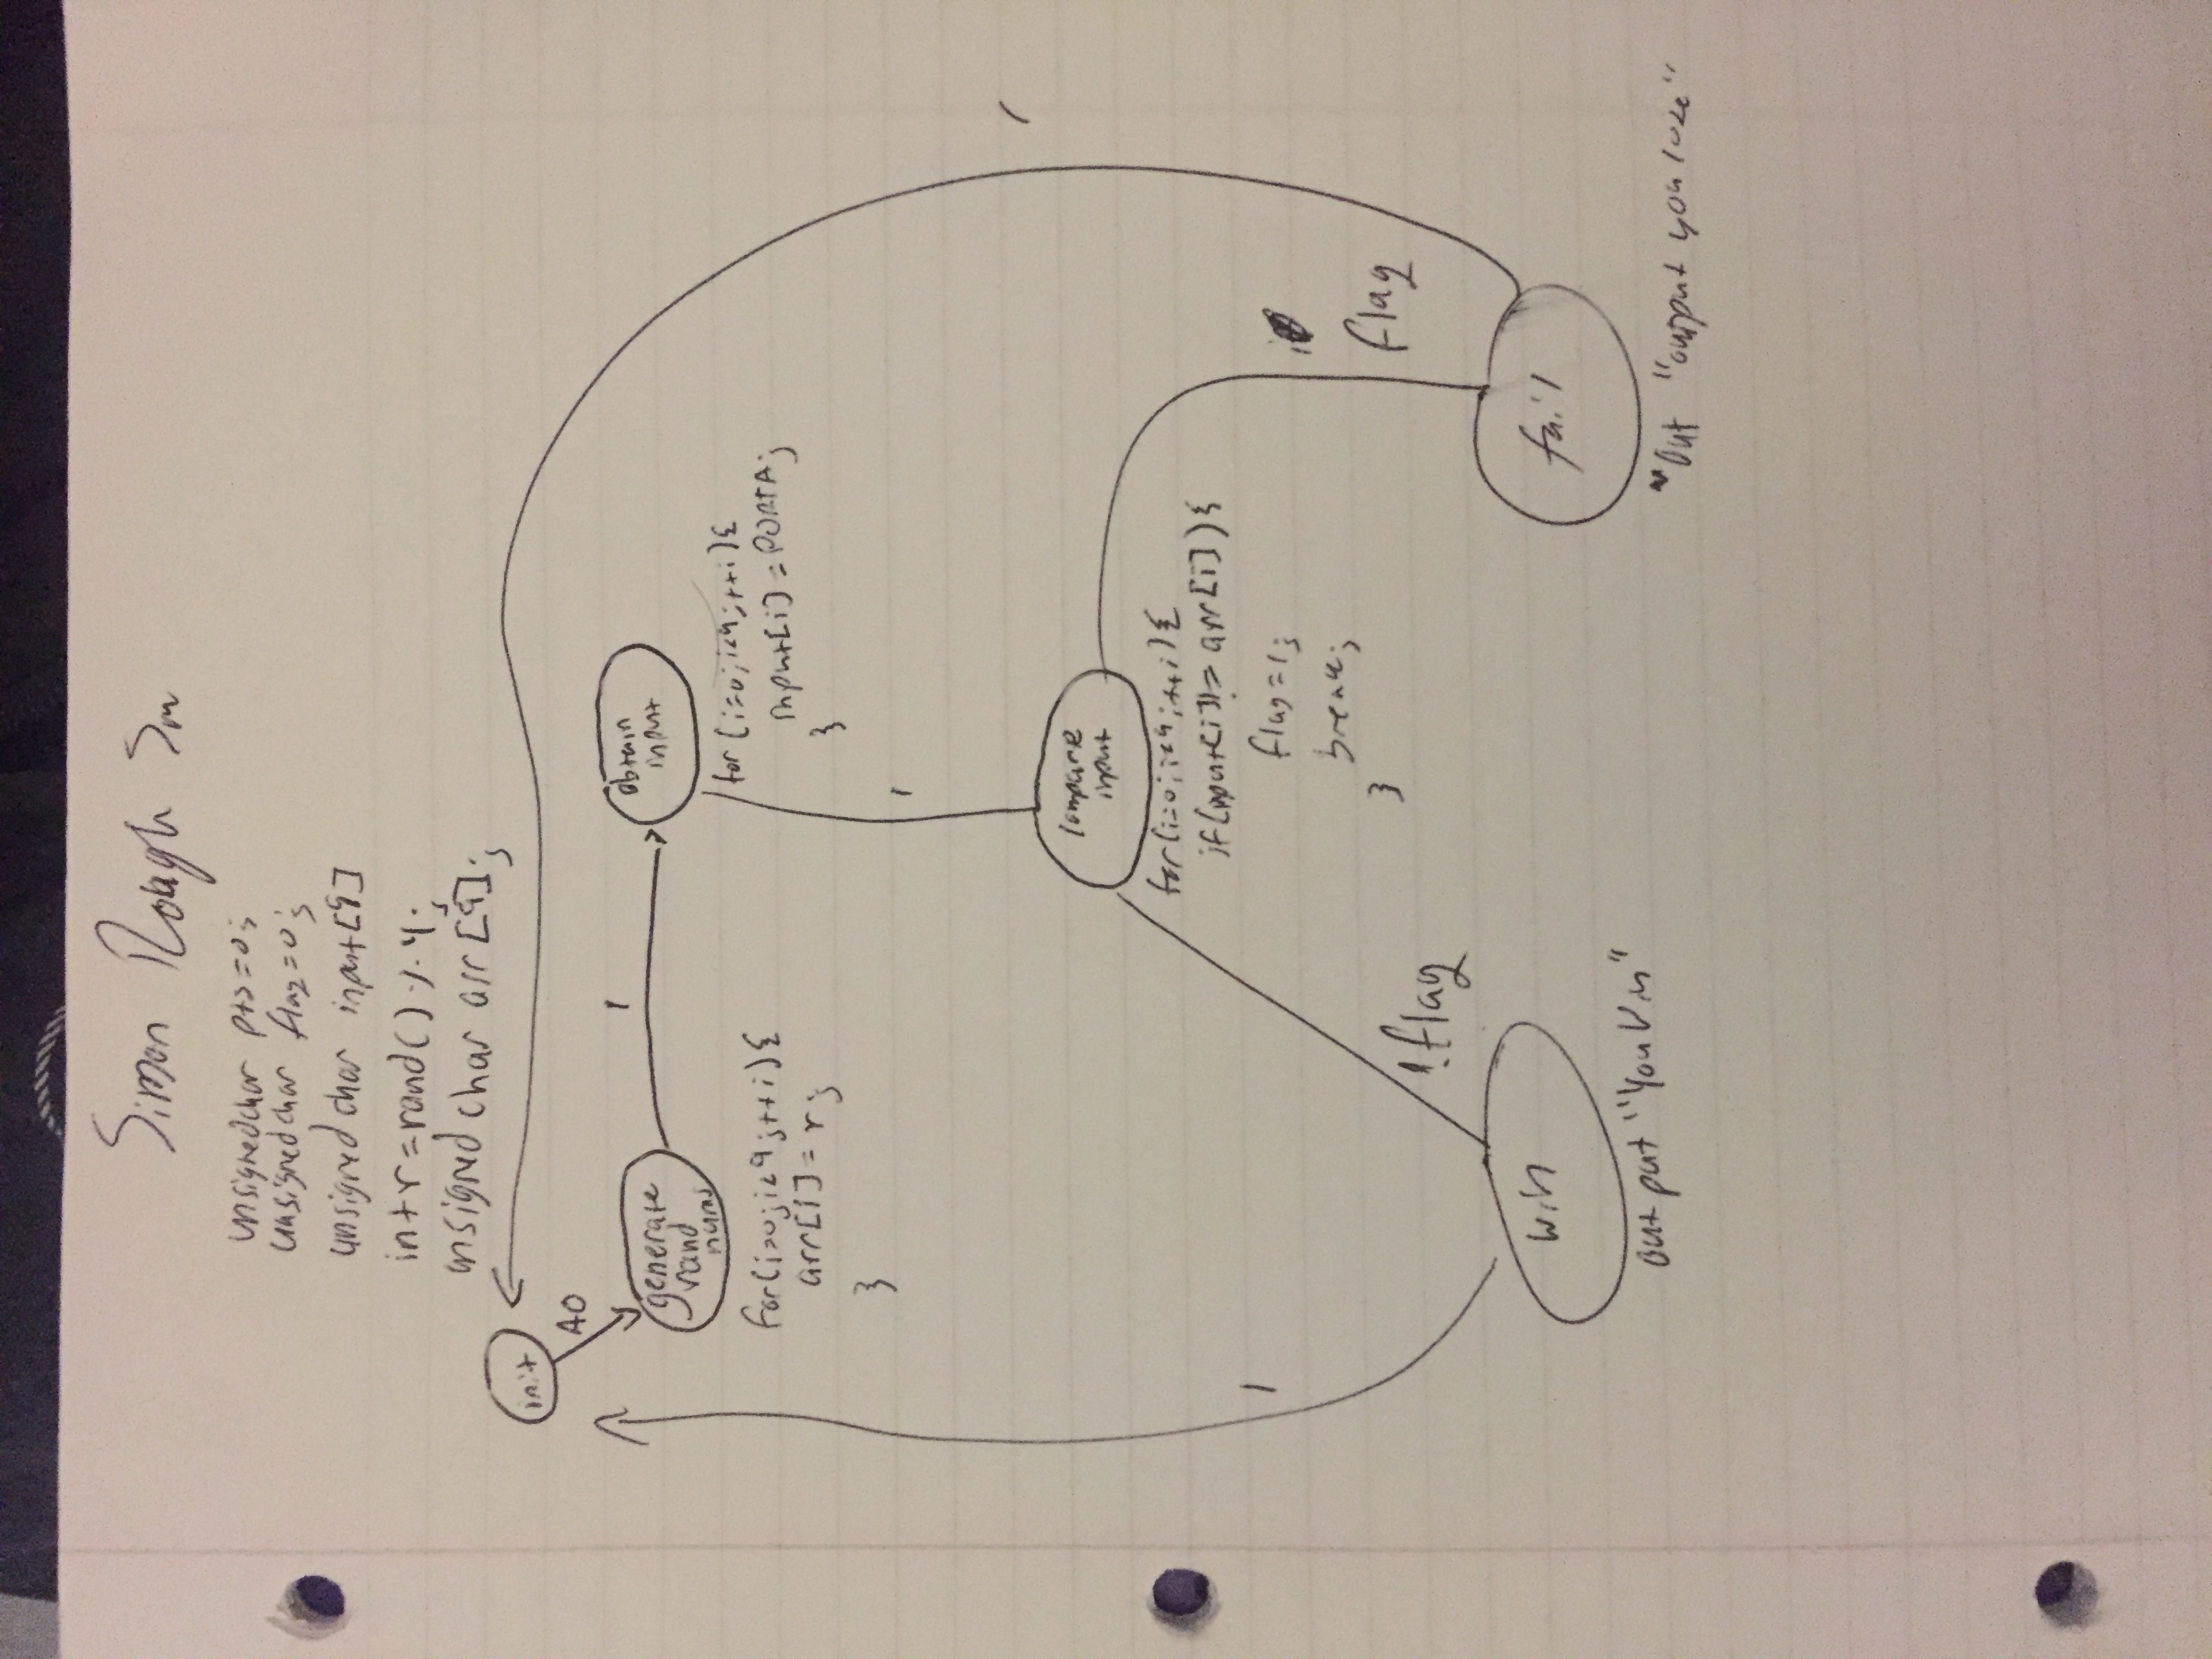 Simon Rough Sm
unsigned char pts=0;
unsigned char flag=0;
unsigned char input[9]
int r=rand() % 4;
unsigned char arr[9];
init
A0
generate
rand
nums
1
obtain
input
for(i=0;i<9;++i){
arr[i]=r;
}
for(i=0;i<9;++i){
input[i]=PORTA;
}
1
1
compare
input
for(i=0;i<9;++i){
if(input[i]!=arr[i]){
flag=1;
break;
}
1
!flag
flag
win
fail
output "You Win"
Out "output you lose"